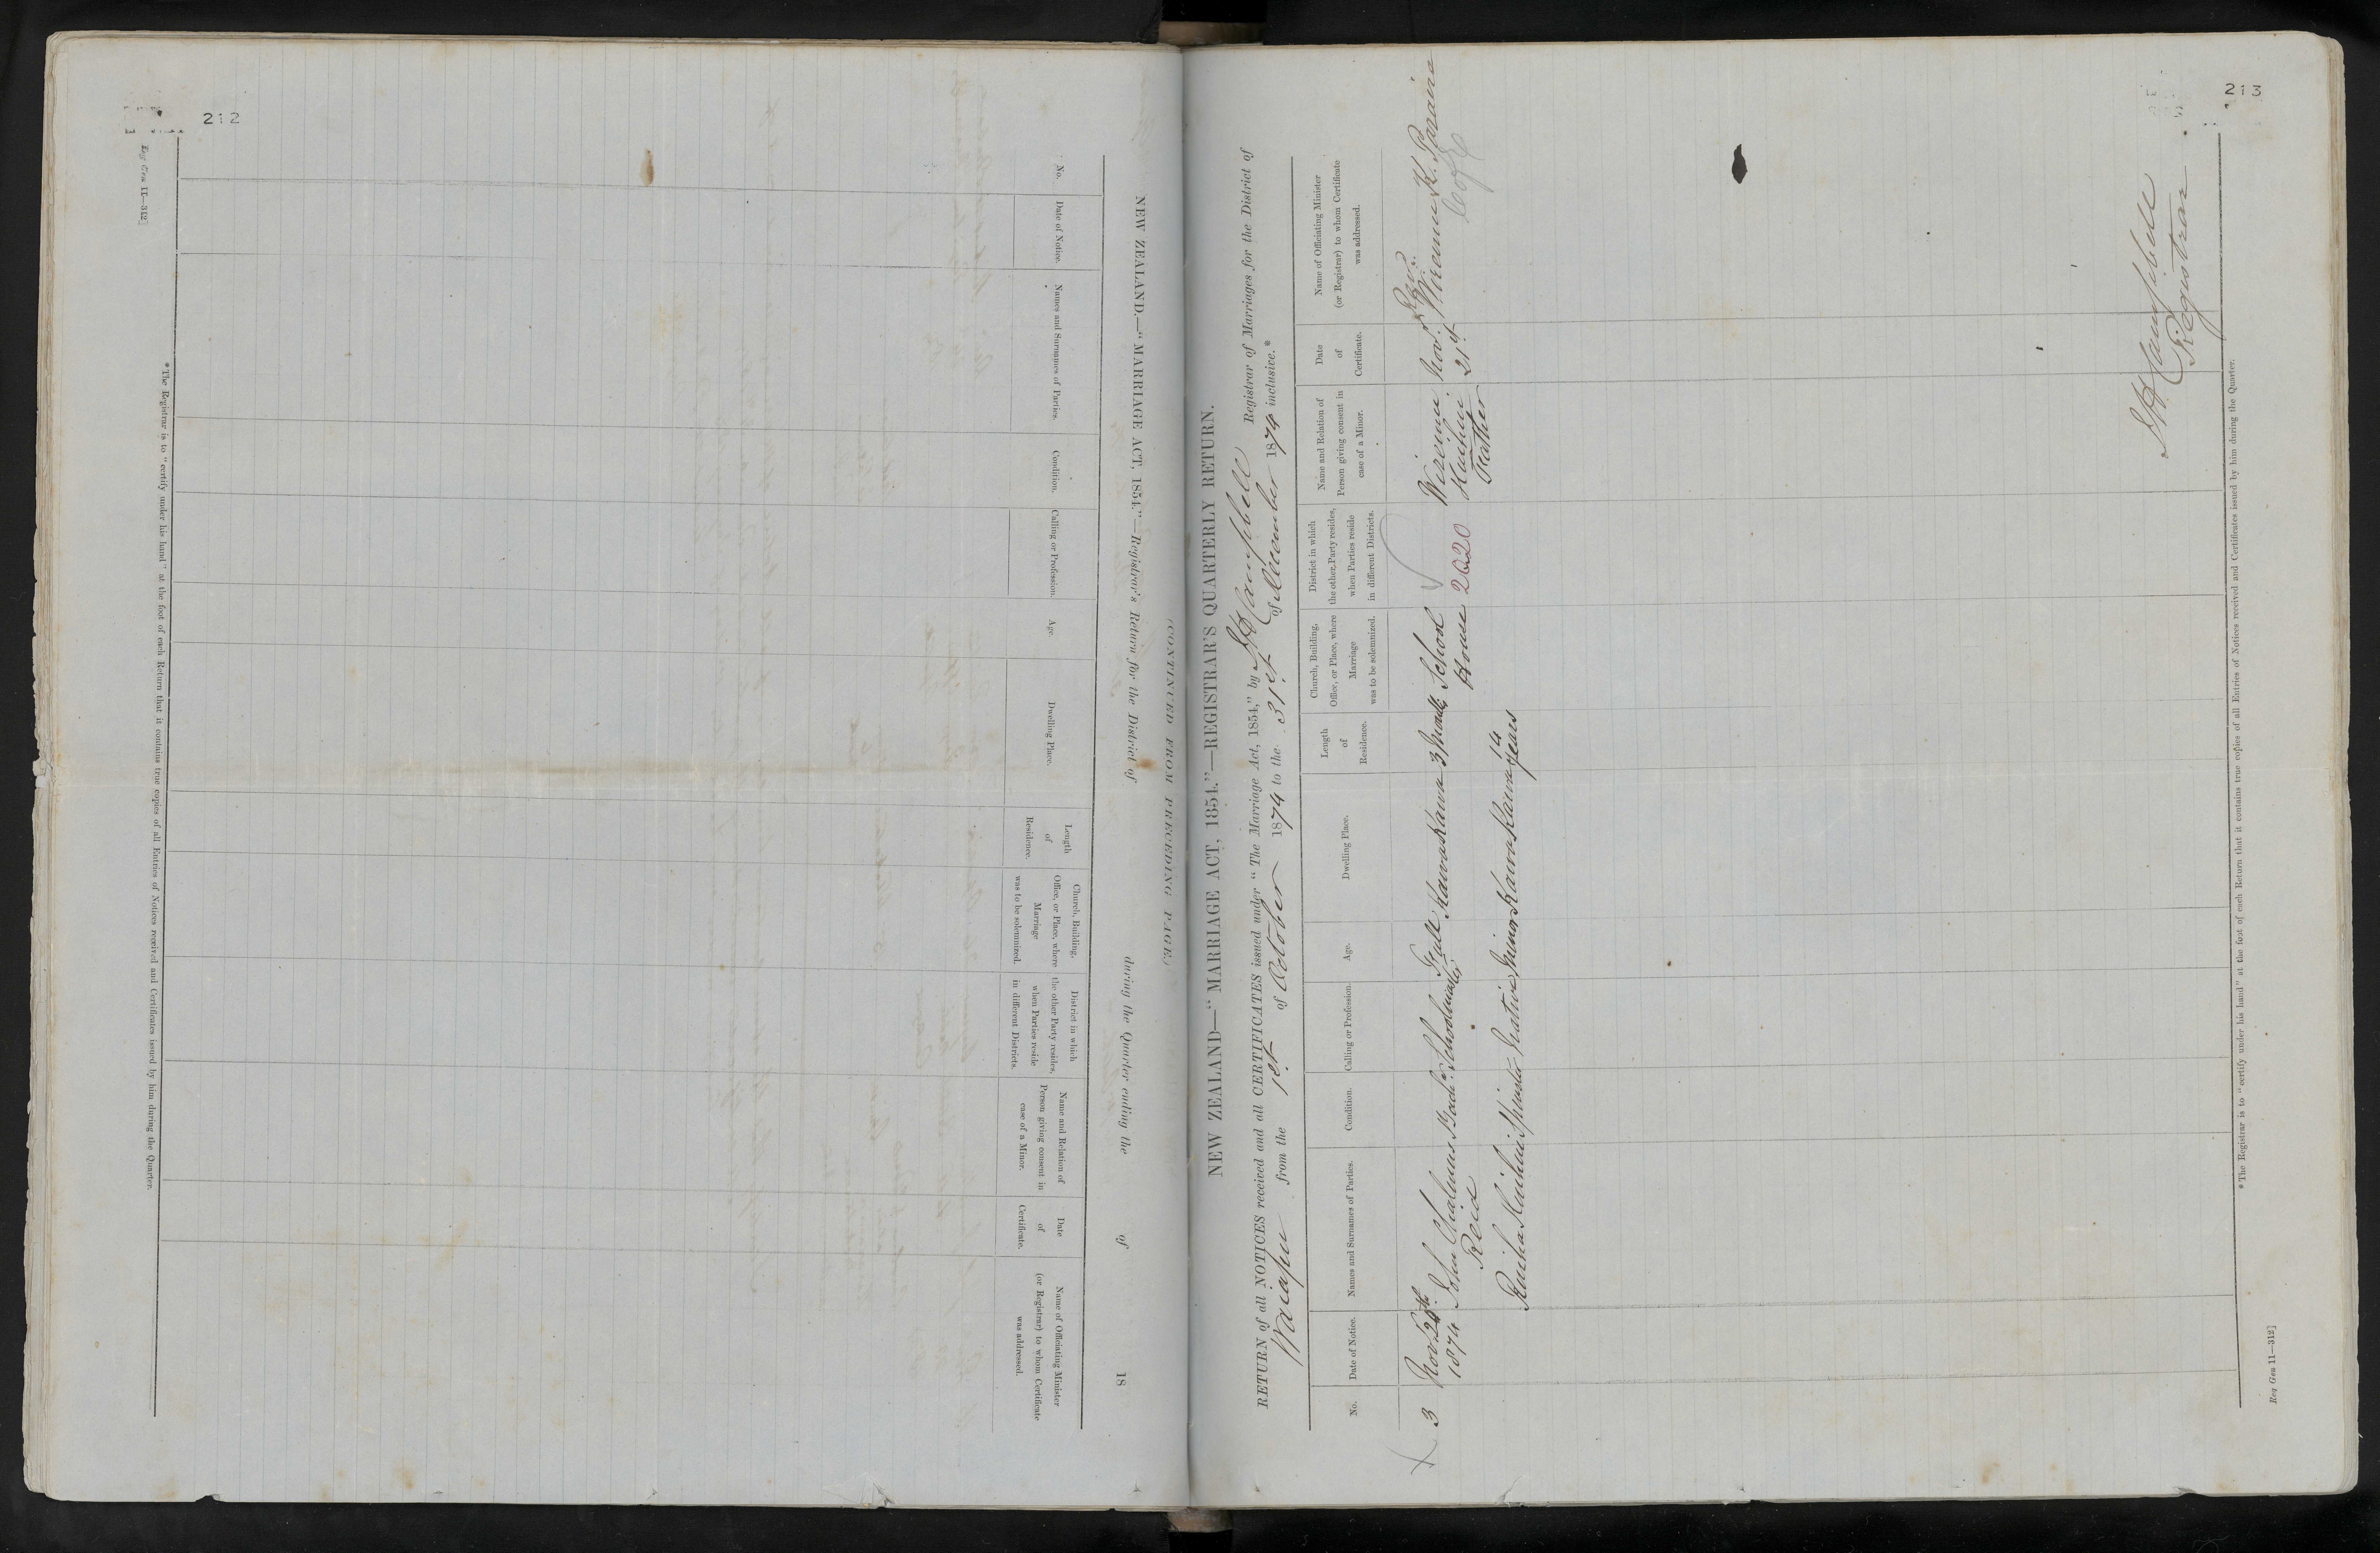 212
NEW ZEALAND.—“MARRIAGE ACT, 1854.”—Registrar's Return for the District of during the Quarter ending the of 18
(CONTINUED FROM PRECEDING PAGE.)
No.
Date of Notice.
Names and Surnames of Parties.
Condition.
Calling or Profession.
Age.
Dwelling Place.
Length
of
Residence.
Church, Building,
Office, or Place, where
Marriage
was to be solemnized.
District in which
the other Party resides,
when Parties reside
in different Districts.
Name and Relation of
Person giving consent in
case of a Minor.
Date
of
Certificate.
Name of Officiating Minister
(or Registrar) to whom Certificate
was addressed.
* The Registrar is to “certify under his hand” at the foot of each Return that it contains true copies of all Entries of Notices received and Certificates issued by him during the Quarter.
Reg Gen 11—312]
213
NEW ZEALAND—“MARRIAGE ACT, 1854.”—REGISTRAR'S QUARTERLY RETURN.
RETURN of all NOTICES received and all CERTIFICATES issued under “The Marriage Act, 1854,” by Campbell Registrar of Marriages for the District of
Waiapu from the 1st of October 1874 to the 31st of December 1874 inclusive.*
No.
Date of Notice.
Names and Surnames of Parties.
Condition.
Calling or Profession.
Age.
Dwelling Place.
Length
of
Residence.
Church, Building,
Office, or Place, where
Marriage
was to be solemnized.
District in which
the other Party resides,
when Parties reside
in different Districts.
Name and Relation of
Person giving consent in
case of a Minor.
Date
of
Certificate.
Name of Officiating Minister
(or Registrar) to whom Certificate
was addressed.
3 Nov 1874 John Chalmers Reid Bachr Schoolmaster Full Kawakawa 3 Months School House 2020
Huihui Spinster Native Minor Kawakawa 14 years
Wiremu Huihui Father
Nov. 21st
Revd. Wiremu K. Paraire
Copy
Campbell
Registrar
* The Registrar is to “certify under his hand” at the foot of each Return that it contains true copies of all Entries of Notices received and Certificates issued by him during the Quarter.
Reg Gen 11—312]